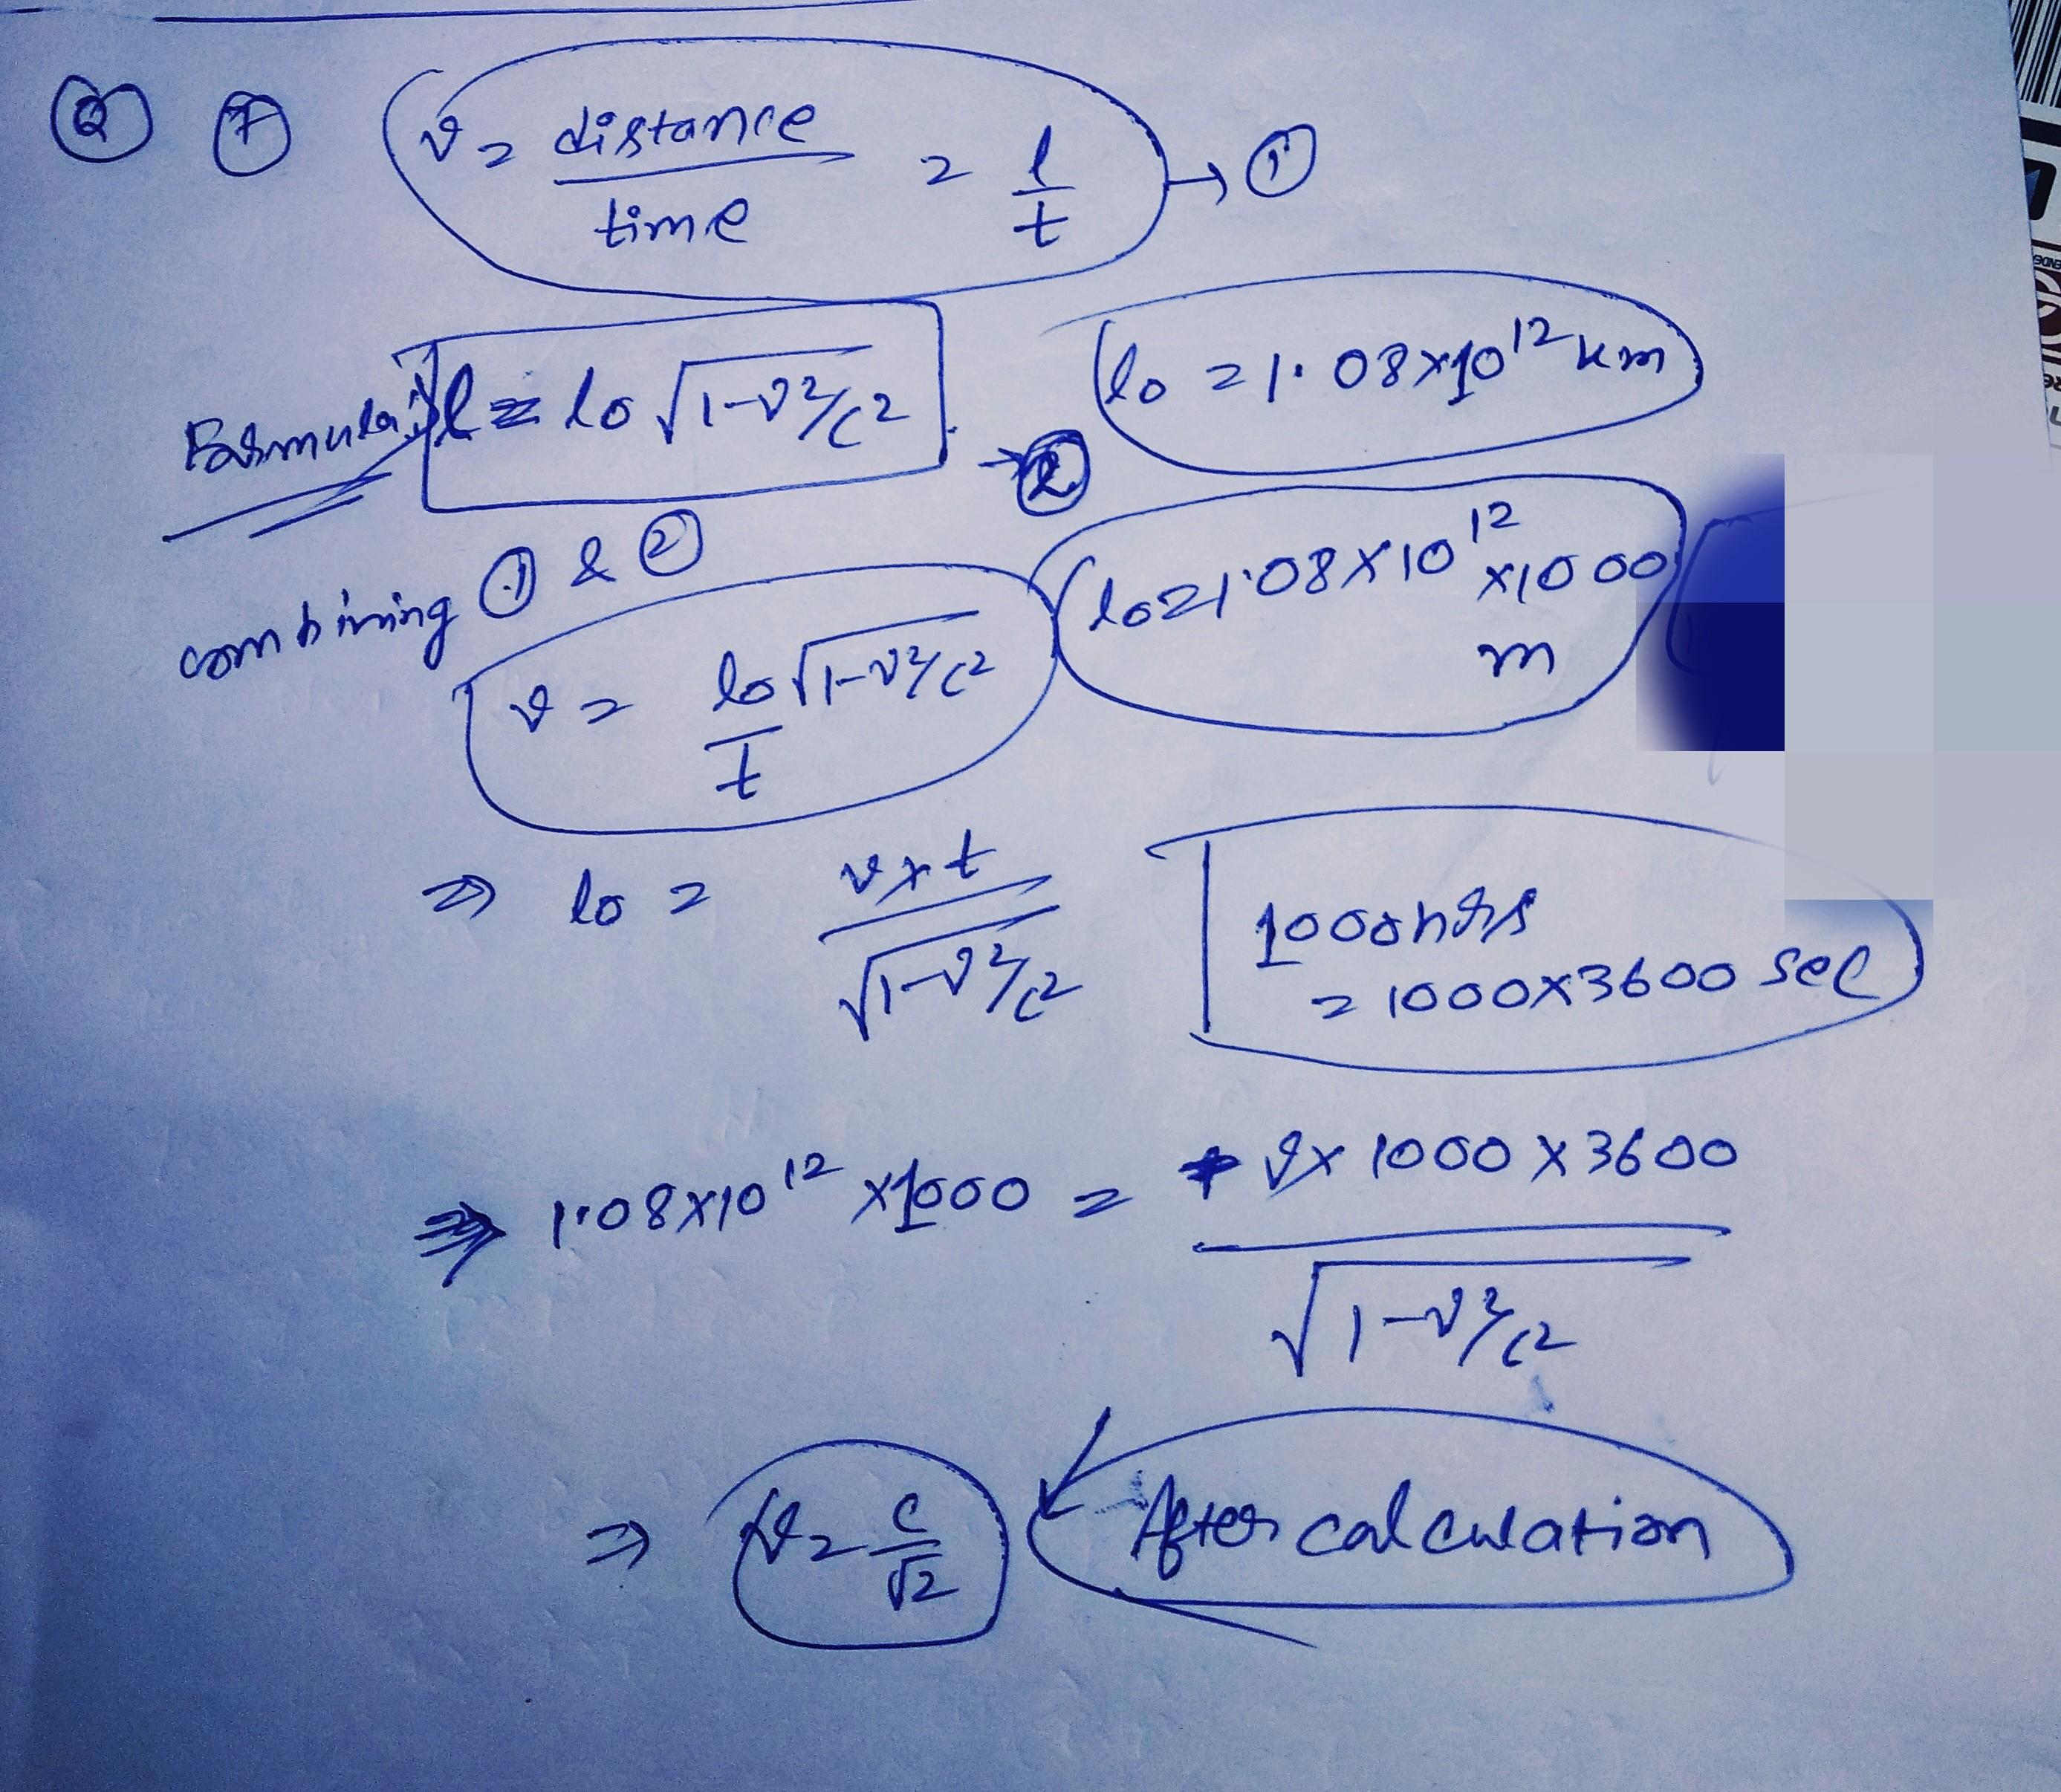 Q 7 v = distance/time = l/t → ①
Formula: l = lo √1-v²/c² → ②
lo = 1.08×10¹² km
lo = 1.08×10¹² ×1000 m
combining ① & ②
v = lo√1-v²/c² / t
⇒ lo = v×t / √1-v²/c²
1000hrs
= 1000×3600 sec
⇒ 1.08×10¹² ×1000 = v× 1000 × 3600 / √1-v²/c²
⇒ v = c/√2 After calculation